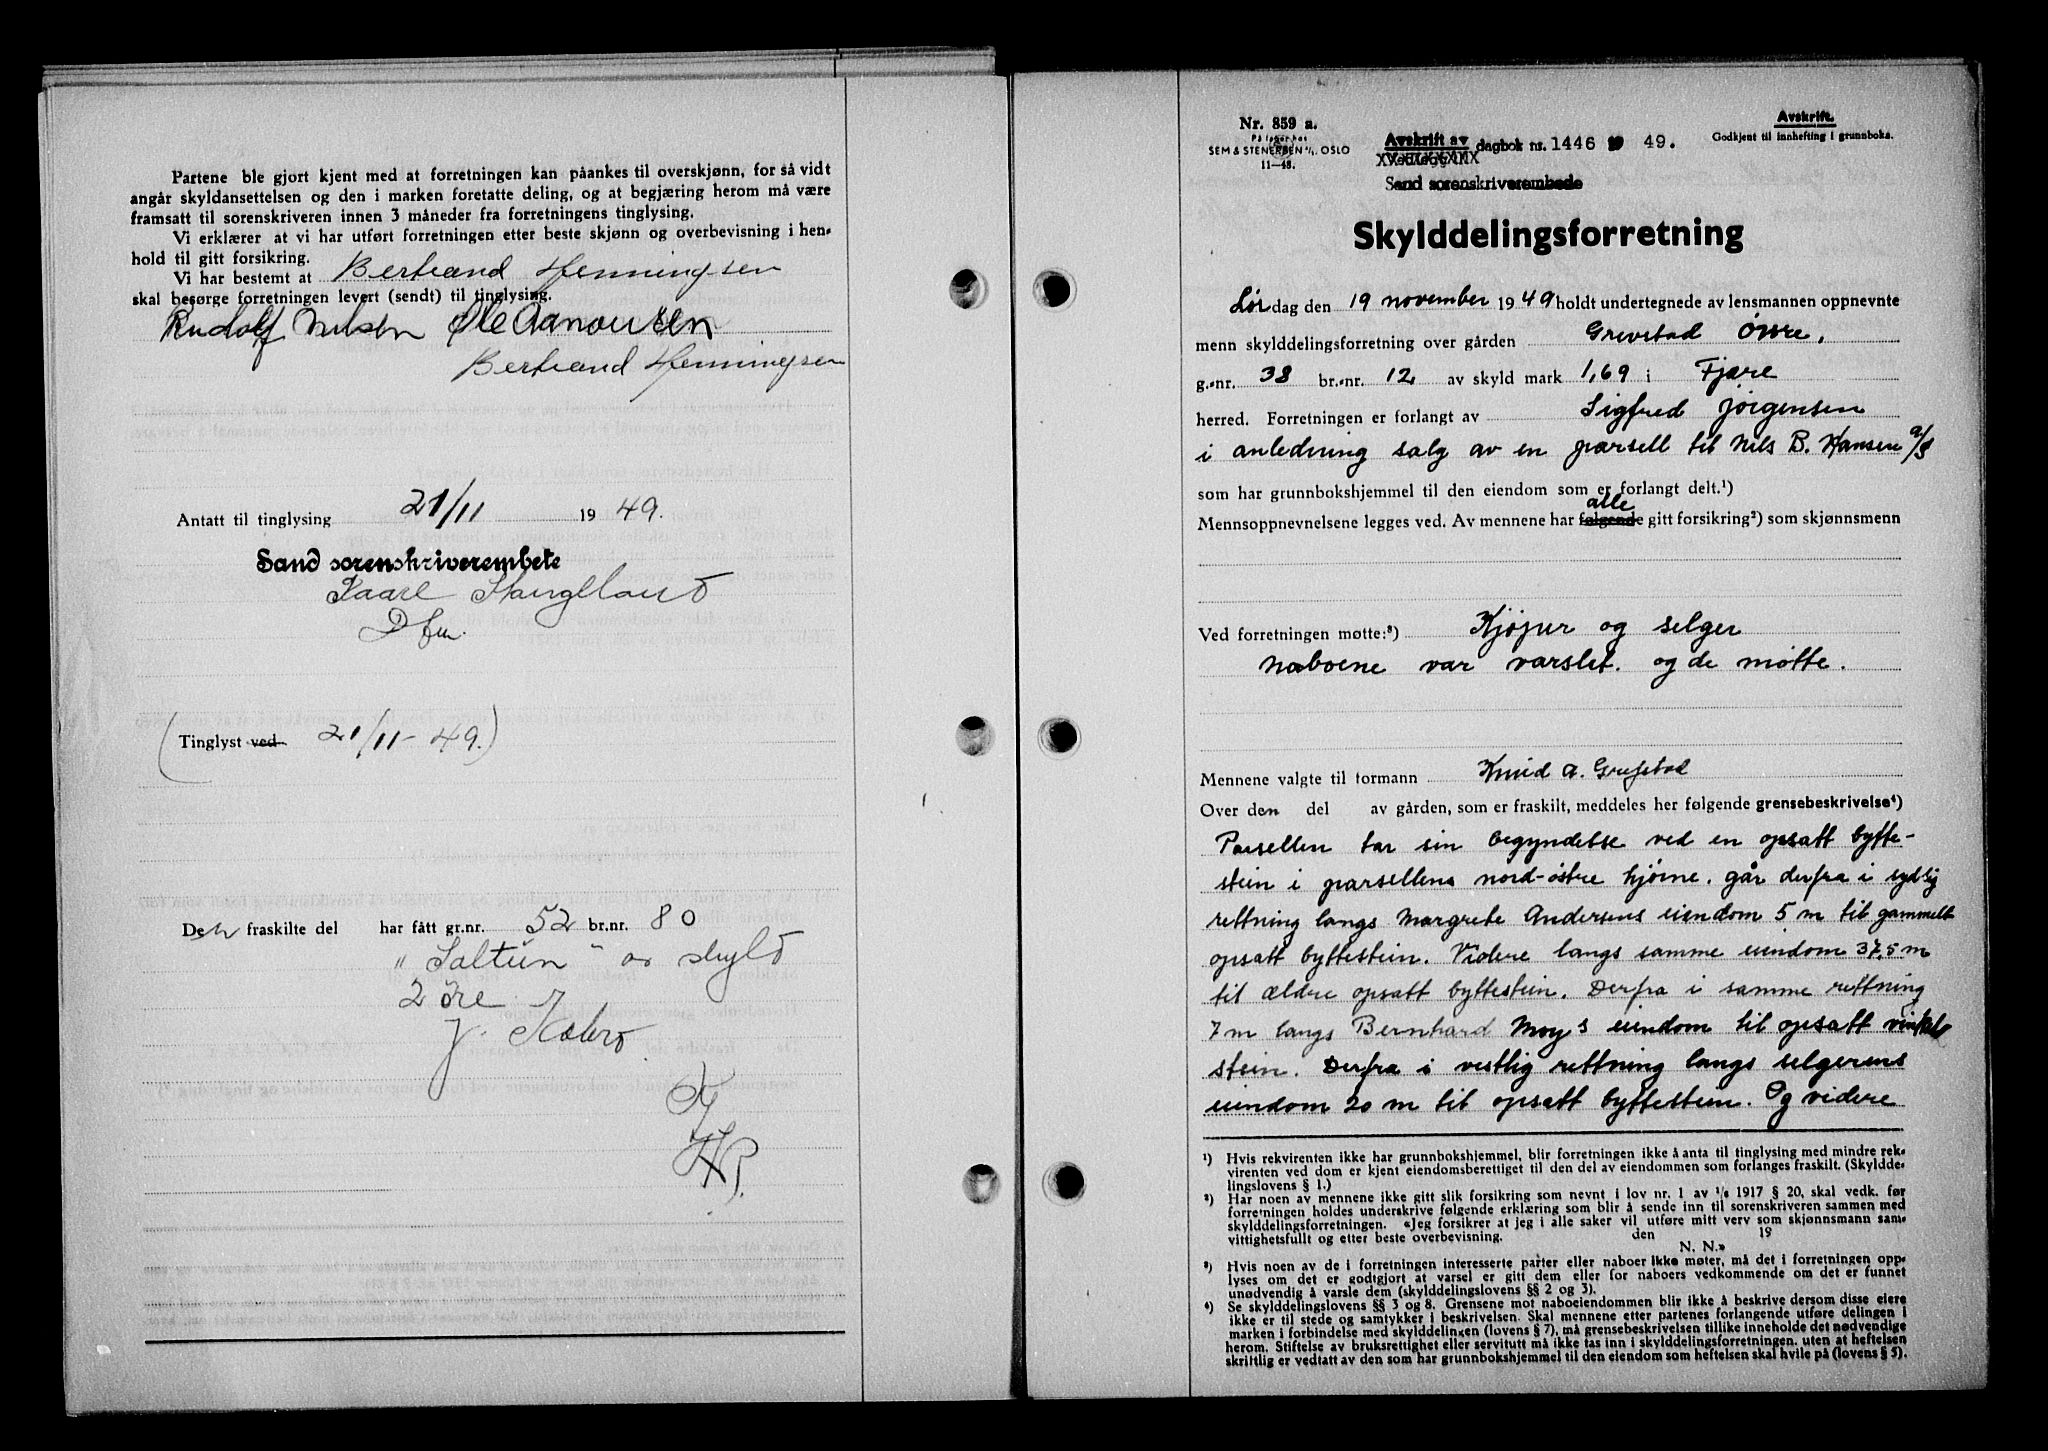 Partene ble gjort kjent med at forretningen kan påankes til overskjønn, for så vidt
angår skyldansettelsen og den i marken foretatte deling, og at begjæring herom må være
framsatt til sorenskriveren innen 3 måneder fra forretningens tinglysing.
Vi erklærer at vi har utført forretningen etter beste skjønn og overbevisning i hen-
hold til gitt forsikring.
Vi har bestemt at Bertrand Henningsen
skal besørge forretningen levert (sendt) til tinglysing.
Rudolf Nilsen Ole Aanonsen
Bertrand Henningsen
Antatt til tinglysing 21/11 1949.
Sand sorenskriverembete
Kaare Stangeland
Dfm.
(Tinglyst ved 21/11-49.)
Den fraskilte del har fått gr.nr. 52 br.nr. 80
"Saltun" av skyld
2 øre.
Nr. 859 a.
På lager hos
SEM & STENERSEN A/S, OSLO
11-48.
Avskrift av dagbok nr. 1446 19 49.
Sand sorenskriverembede
Avskrift.
Godkjent til innhefting i grunnboka.
Skylddelingsforretning
Lørdag den 19 november 1949 holdt undertegnede av lensmannen oppnevnte
menn skylddelingsforretning over gården Grevstad Øvre,
g.-nr. 38 br.-nr. 12 av skyld mark 1,69 i Fjære
herred. Forretningen er forlangt av Sigfred Jørgensen
i anledning salg av en parsell til Nils B. Hansen a/s
som har grunnbokshjemmel til den eiendom som er forlangt delt.¹)
Mennsoppnevnelsene legges ved. Av mennene har følgende alle gitt forsikring²) som skjønnsmenn
Ved forretningen møtte:³) Kjøper og selger
naboene var varslet. og de møtte.
Mennene valgte til formann Knud A. Grefstad
Over den del av gården, som er fraskilt, meddeles her følgende grensebeskrivelse⁴)
Parsellen tar sin begyndelse ved en opsatt bytte-
stein i parsellens nord-østre hjørne. går derfra i sydlig
rettning langs Margrete Andersens eiendom 5 m til gammelt
opsatt byttestein. Videre langs samme eiendom 37,5 m
til ældre opsatt byttestein. Derfra i samme rettning
7 m langs Bernhard Moys eiendom til opsatt vinkel
stein. Derfra i vestlig rettning langs selgerens
eiendom 20 m til opsatt byttestein. Og videre
¹) Hvis rekvirenten ikke har grunnbokshjemmel, blir forretningen ikke å anta til tinglysing med mindre rek-
virenten ved dom er kjent eiendomsberettiget til den del av eiendommen som forlanges fraskilt. (Skyldde-
lingslovens § 1.)
²) Har noen av mennene ikke gitt slik forsikring som nevnt i lov nr. 1 av 1/6 1917 § 20, skal vedk. før
forretningen holdes underskrive følgende erklæring som blir å sende inn til sorenskriveren sammen med
skylddelingsforretningen. «Jeg forsikrer at jeg i alle saker vil utføre mitt verv som skjønnsmann sam-
vittighetsfullt og etter beste overbevisning. den 19
N. N.»
³) Hvis noen av de i forretningen interesserte parter eller naboer ikke møter, må det i forretningen opp-
lyses om det er godtgjort at varsel er gitt dem eller for naboers vedkommende om det er funnet
unødvendig å varsle dem (skylddelingslovens §§ 2 og 3).
⁴) Se skylddelingslovens §§ 3 og 8. Grensene mot naboeiendommen blir ikke å beskrive dersom disse eiere
ikke er til stede og samtykker i beskrivelsen. Skal mennene etter partenes forlangende utføre delingen i
marken i forbindelse med skylddelingen (lovens § 7), må grensebeskrivelsen tillike inneholde det nødvendige
herom. Stiftelse av bruksrettighet eller servitutt må ikke tas inn i skylddelingsforretningen. uten at heftelsen
skriftlig er vedtatt av den som har grunnbokshjemmel til den eiendom som heftelsen skal hvile på (lovens § 5).